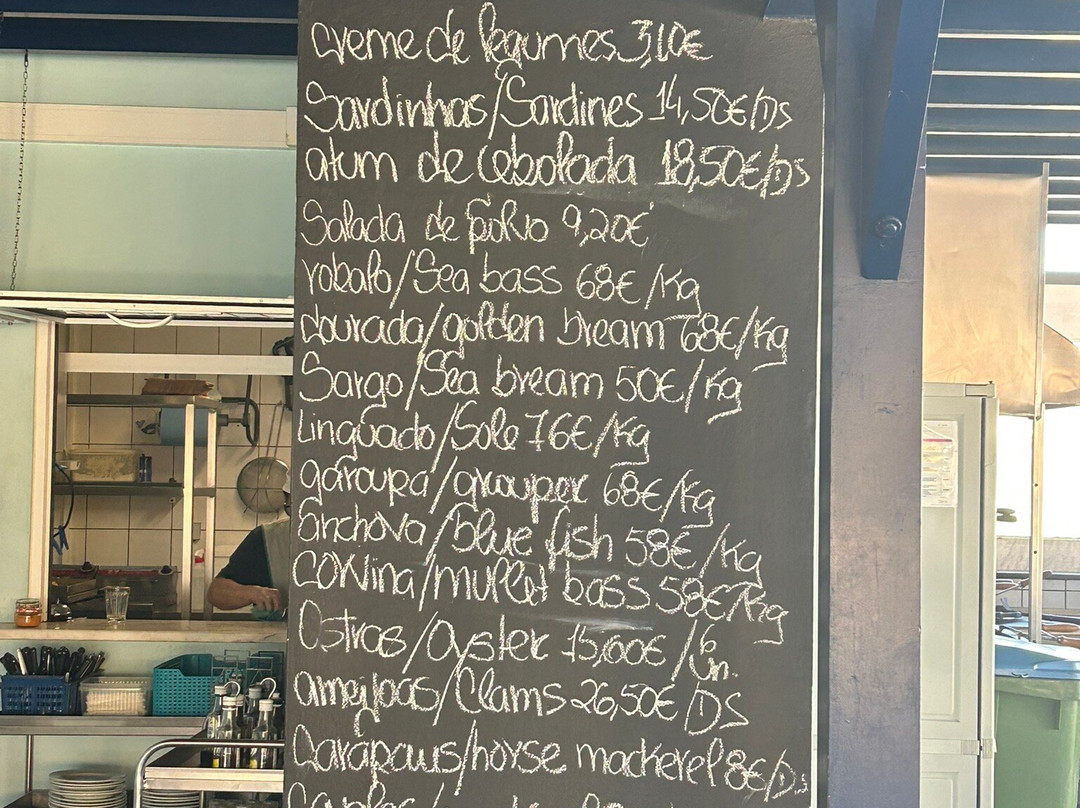 creme de legumes 3,10€
Sardinhas/Sardines 14,50€/DS
atum de cebolada 18,50€/DS
Salada de polvo 9,20€
robalo/Sea bass 68€/Kg
dourada/golden bream 68€/Kg
Sargo/Sea bream 50€/Kg
Linguado/Sole 76€/Kg
garoupa/grouper 68€/Kg
anchova/blue fish 58€/Kg
corvina/mullet bass 58€/Kg
Ostras/Oyster 15,00€/6 un.
ameijoas/Clams 26,50€/DS
Carapaus/horse mackerel 8€/Ds